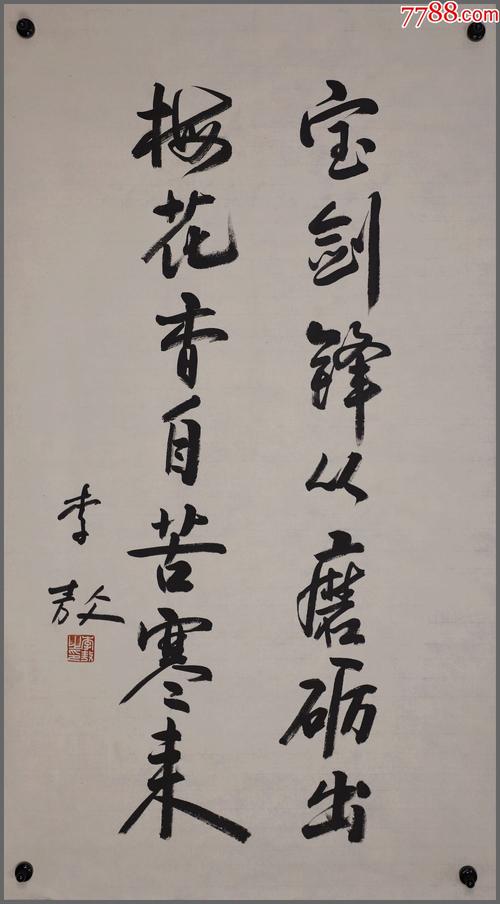 7788.com
宝剑锋从磨砺出
梅花香自苦寒来
李敖
李敖之印